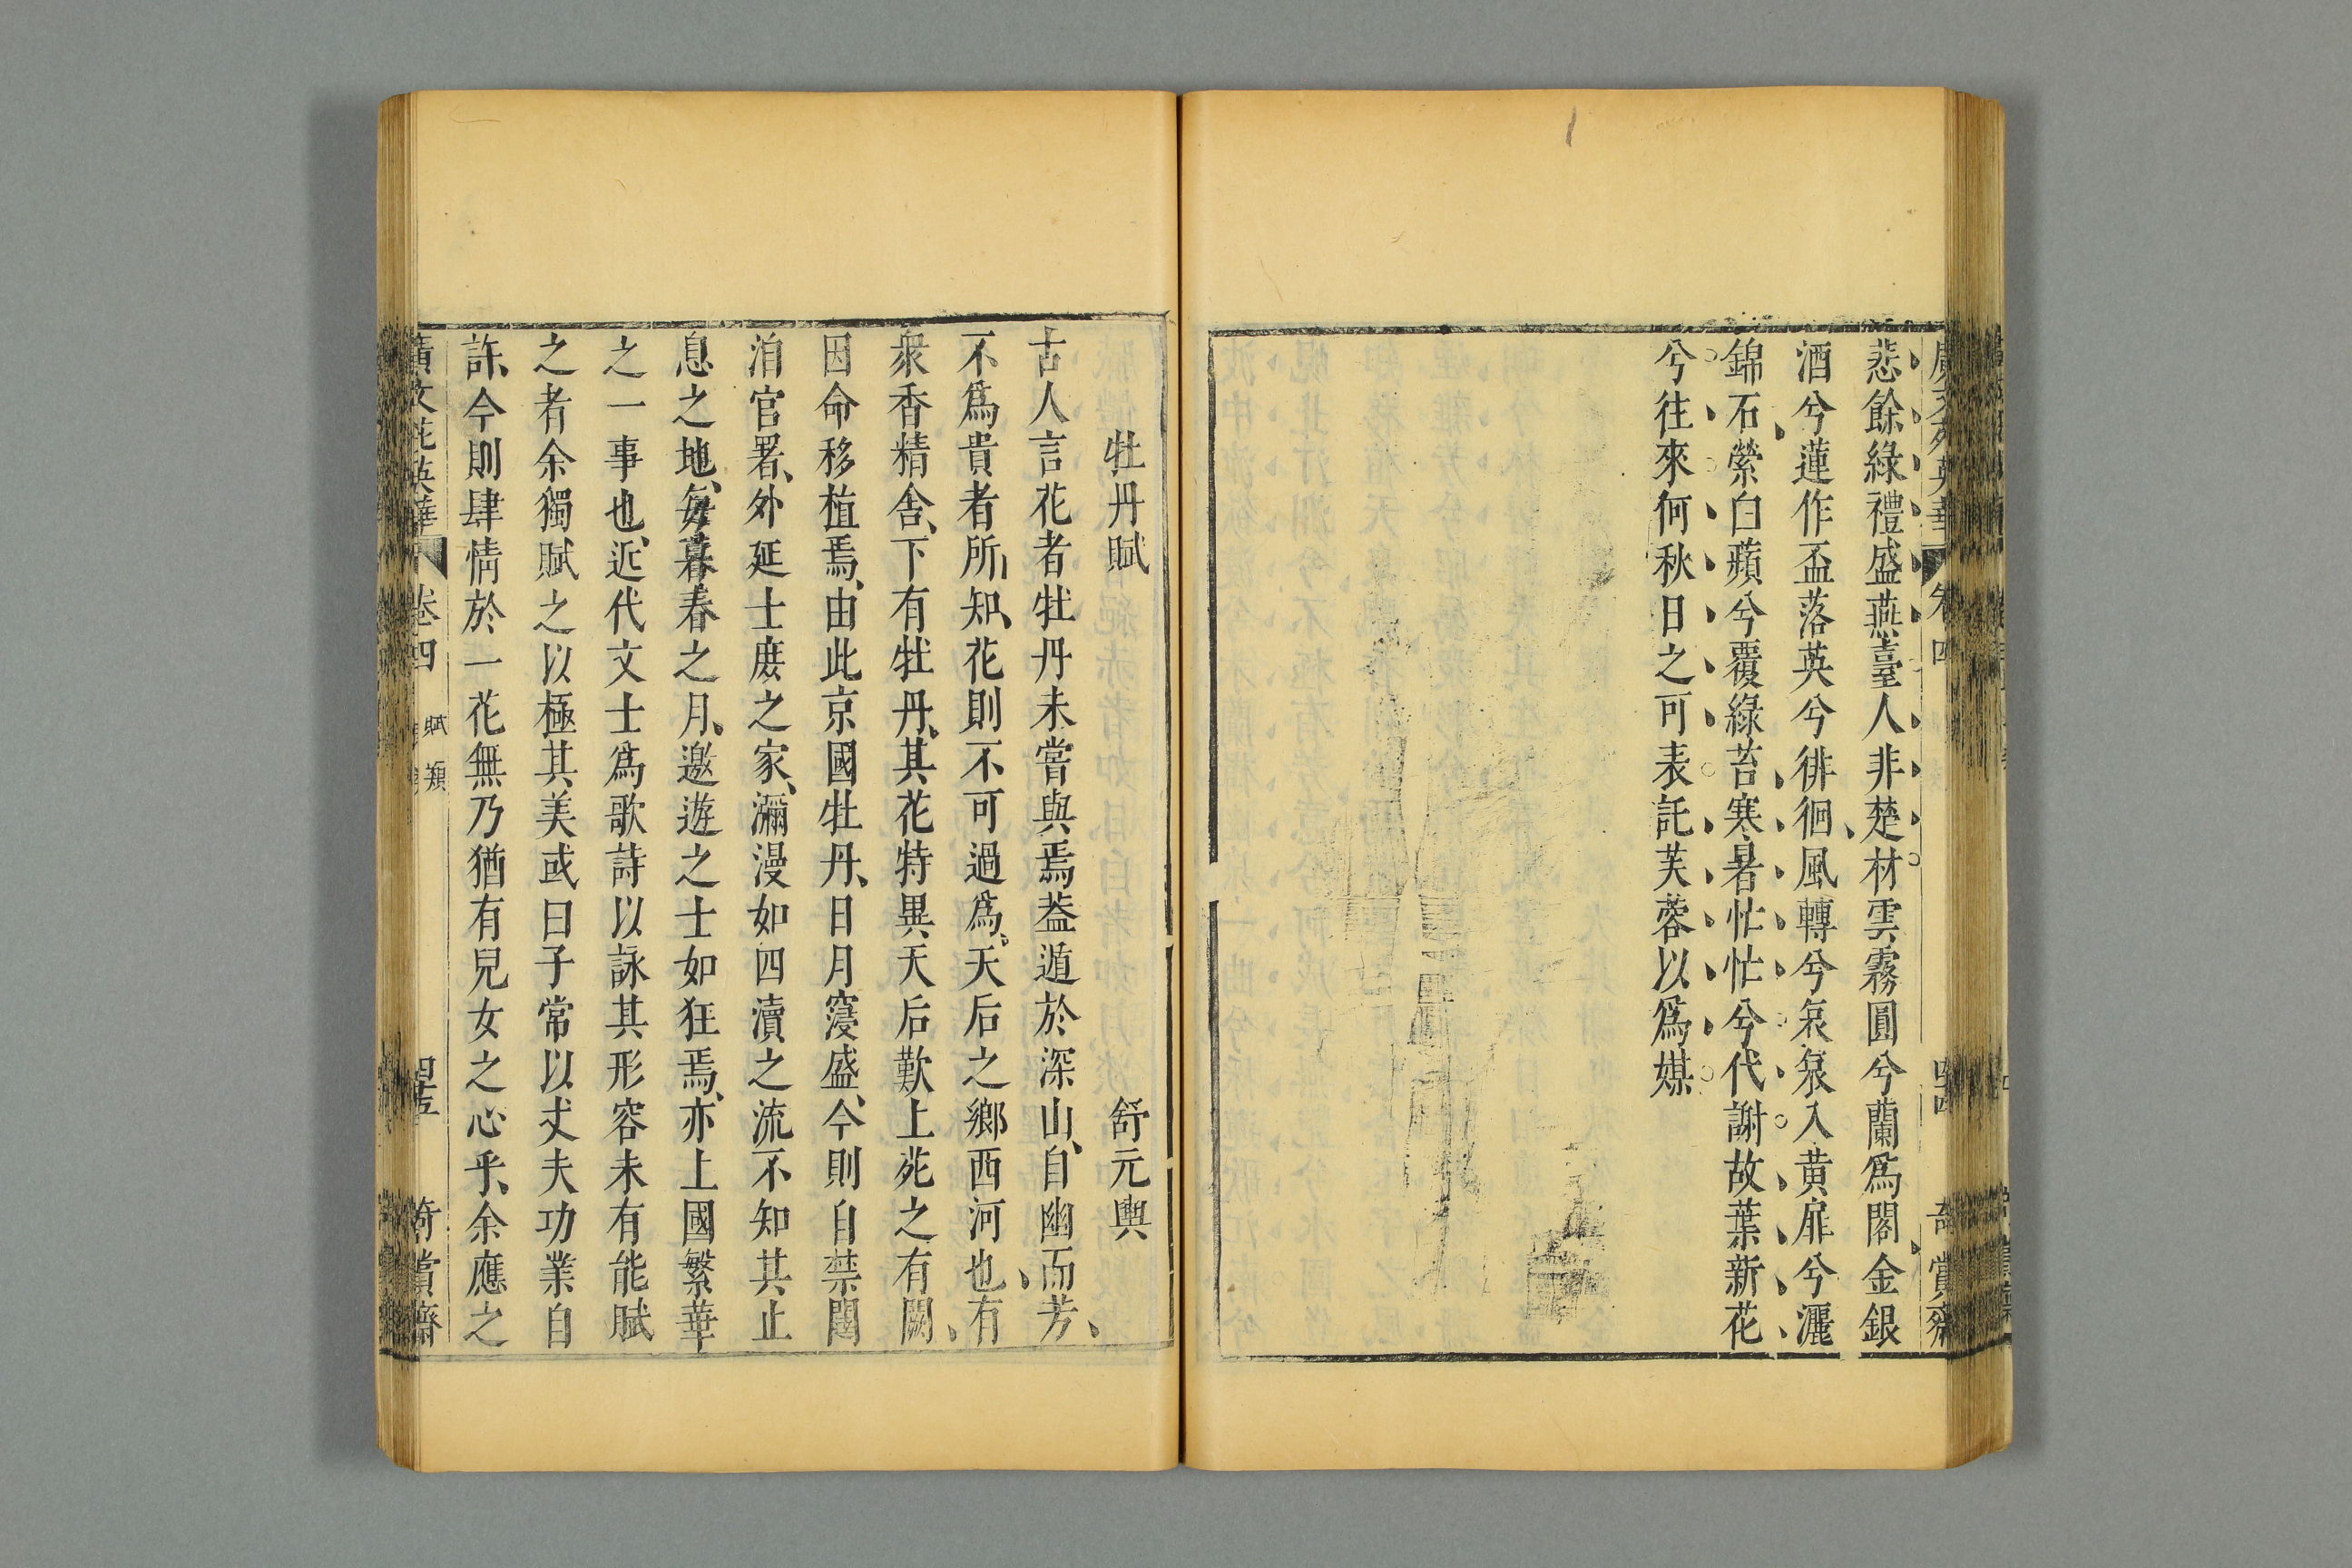 廣文苑英華 卷四 四四 奇賞齋
悲餘綠禮盛燕臺人非楚材雲霧圓兮蘭爲閣金銀
酒兮蓮作盃落英兮徘徊風轉兮哀哀入黃扉兮灑
錦石縈白蘋兮覆綠苔寒暑忙忙兮代謝故葉新花
兮往來何秋日之可表託芙蓉以爲媒
牡丹賦 舒元輿
古人言花者牡丹未嘗與焉葢遁於深山、自幽而芳、
不爲貴者所知、花則不可過爲。天后之鄉西河也、有
衆香精舍、下有牡丹、其花特異、天后歎上苑之有闕、
因命移植焉、由此京國牡丹、日月寖盛、今則自禁闥
洎官署、外延士庶之家、瀰漫如四瀆之流不知其止
息之地、每暮春之月、遨遊之士如狂焉、亦上國繁華
之一事也、近代文士爲歌詩以詠其形容未有能賦
之者余獨賦之以極其美或曰子常以丈夫功業自
許、今則肆情於一花無乃猶有兒女之心乎、余應之
廣文苑英華 卷四 賦類 四五 奇賞齋